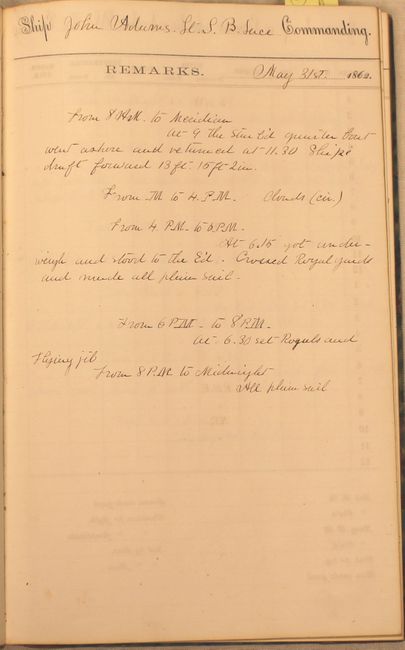 Ship John Adams. Lt. S. B. Luce Commanding.
REMARKS. May 31st. 1862.
From 8 A.M. to Meridian
At 9 the Starb'd quarter boat
went ashore and returned at 11.30 Ships
draft forward 13 ft. 15 ft 2 in.
From M to 4. P.M. Clouds (cir.)
From 4 P.M. to 6 P.M.
At 6.15 got under-
weigh and stood to the Ed. Crossed Royal yards
and made all plain sail -
From 6 P.M. - to 8 P.M.
at 6.30 set Royals and
Flying jib
From 8 P.M. to Midnight
All plain sail